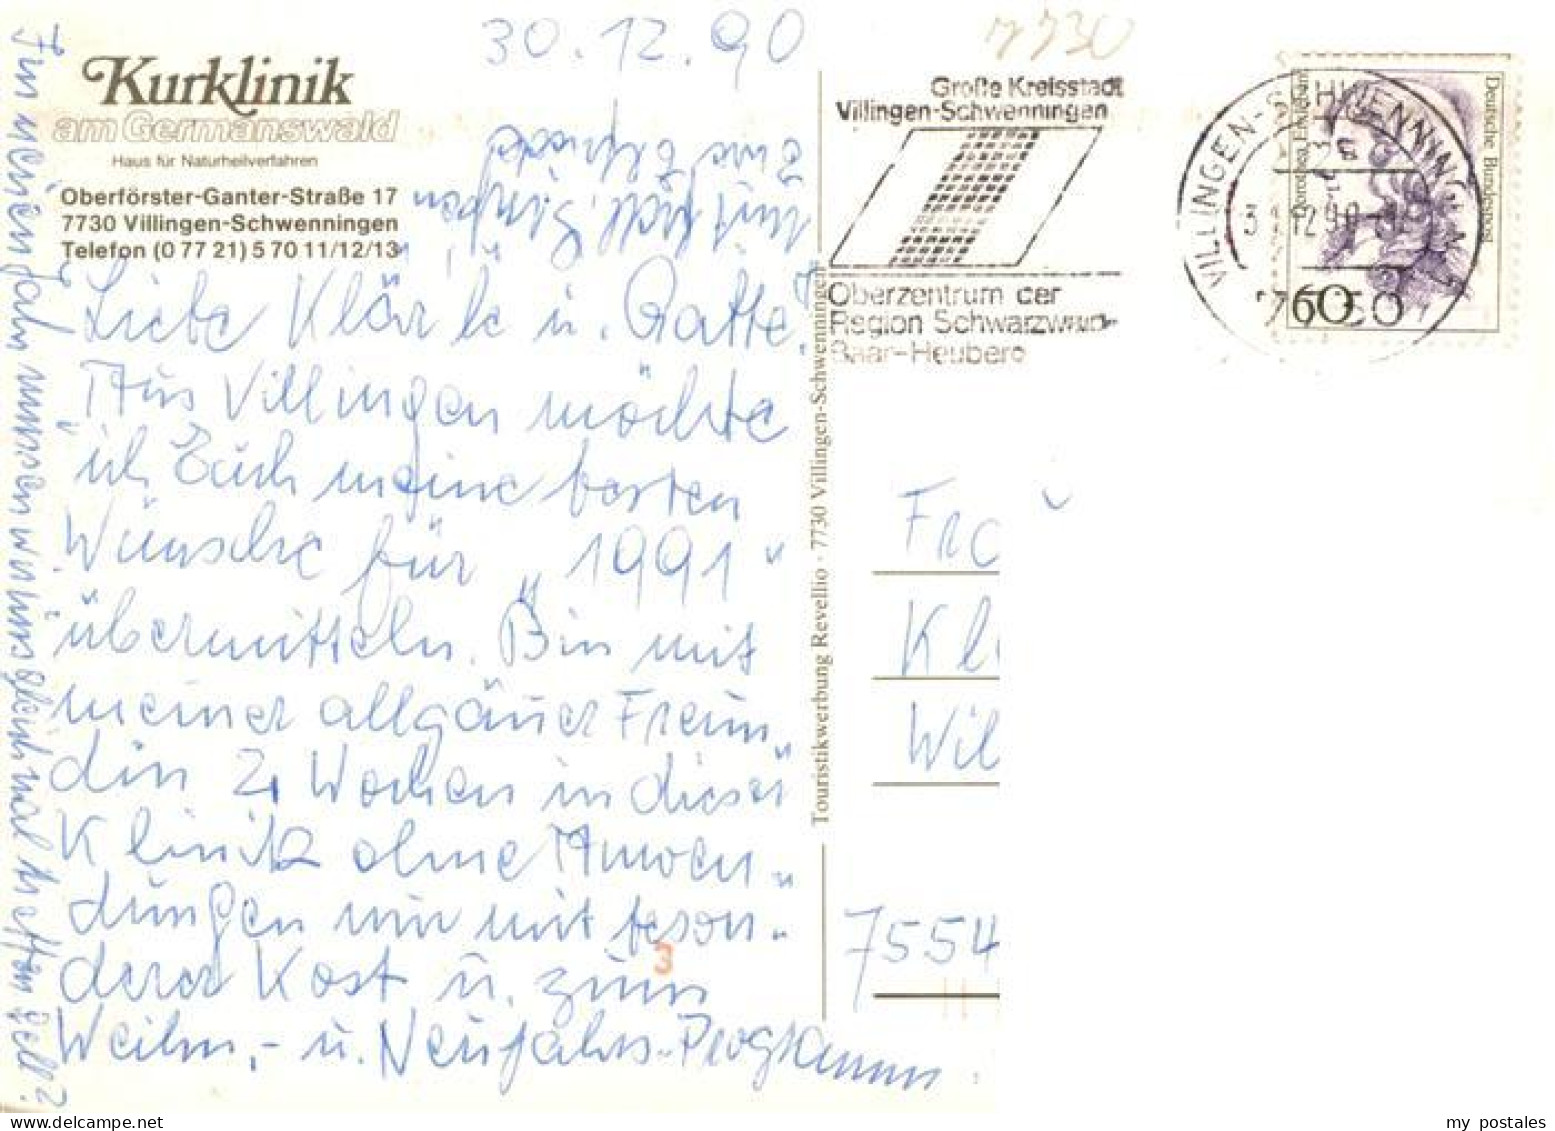 30.12.90
7730
Kurklinik
am Germanswald
Haus für Naturheilverfahren
Oberförster-Ganter-Straße 17
7730 Villingen-Schwenningen
Telefon (0 77 21) 5 70 11/12/13
Liebe Klärle u. Gatte!
Aus Villingen möchte
ich Euch meine besten
Wünsche für „1991"
übermitteln. Bin mit
meiner allgäuer Freun-
din 2 Wochen in dieser
Klinik ohne Anwen-
dungen nur mit beson-
derer Kost u. zum
Weihn.- u. Neujahrs-Programm.
Im neuen Jahr müssen wir uns gleich mal treffen gell?
mit herzl. Grüßen
Eure Elfriede
Touristikwerbung Revellio · 7730 Villingen-Schwenningen
Große Kreisstadt
Villingen-Schwenningen
Oberzentrum der
Region Schwarzwald-
Baar-Heuberg
VILLINGEN-SCHWENNINGEN
Deutsche Bundespost
Dorothea Erxleben
60
Frau
Kl
Wil
7554
3
my postales